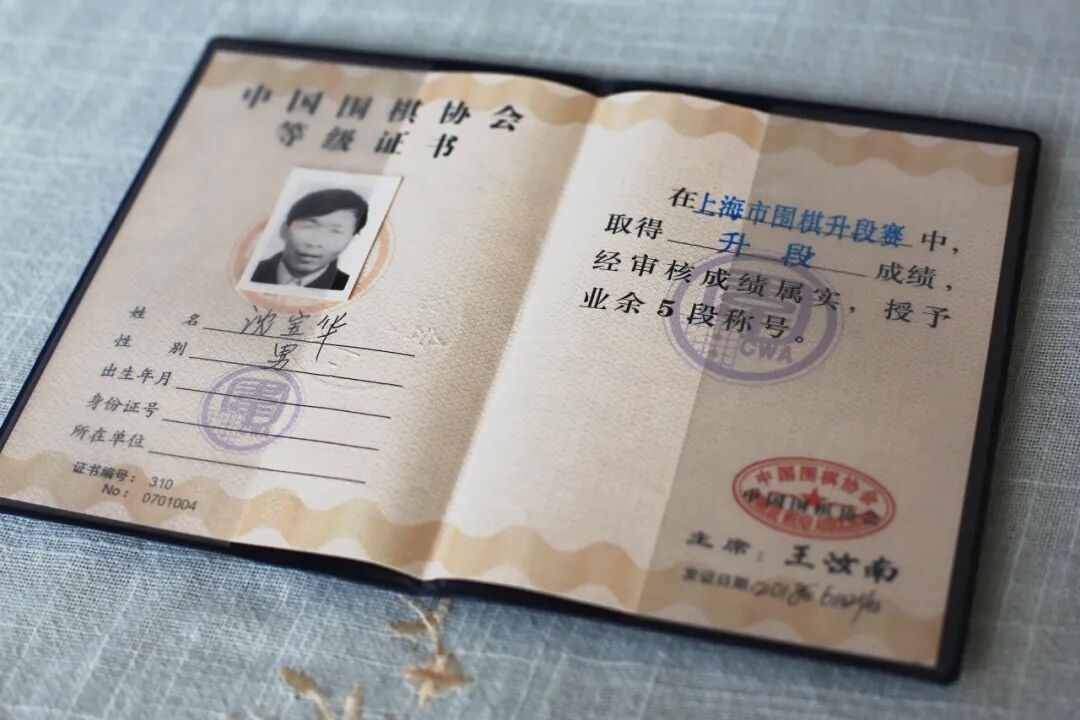 中国围棋协会
等级证书
姓名 沈宝华
性别 男
出生年月
身份证号
所在单位
证书编号：310
No：0701004
在上海市围棋升段赛中，
取得 升段 成绩，
经审核成绩属实，授予
业余5段称号。
CWA
中国围棋协会
中国围棋协会
主席：王汝南
发证日期：2018年6月24日